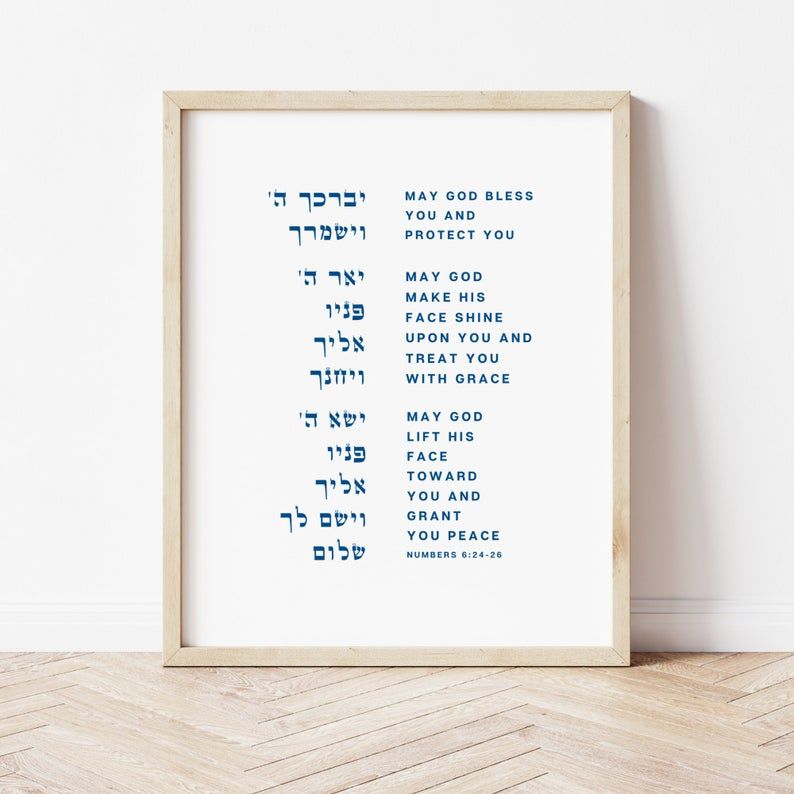 יברכך ה'
וישמרך
יאר ה'
פניו
אליך
ויחנך
ישא ה'
פניו
אליך
וישם לך
שלום
MAY GOD BLESS
YOU AND
PROTECT YOU
MAY GOD
MAKE HIS
FACE SHINE
UPON YOU AND
TREAT YOU
WITH GRACE
MAY GOD
LIFT HIS
FACE
TOWARD
YOU AND
GRANT
YOU PEACE
NUMBERS 6:24-26